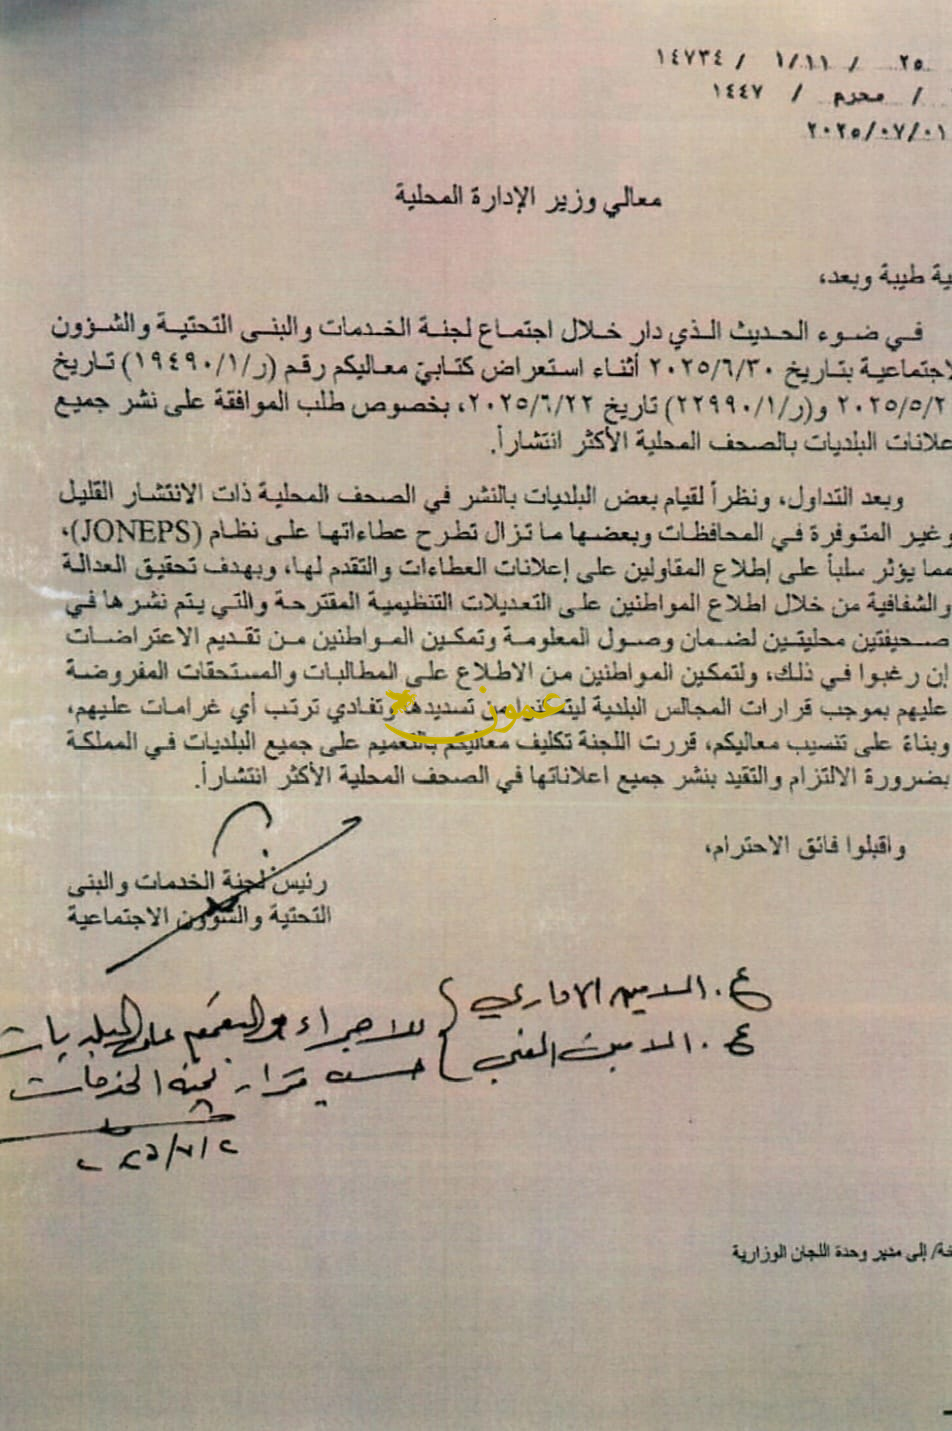 ٢٥ / ١/١١ / ١٤٧٣٤
/ محرم / ١٤٤٧
٢٠٢٥/٠٧/٠١
معالي وزير الإدارة المحلية
ية طيبة وبعد،
في ضوء الحديث الذي دار خلال اجتماع لجنة الخدمات والبنى التحتية والشؤون
لاجتماعية بتاريخ ٢٠٢٥/٦/٣٠ أثناء استعراض كتابيّ معاليكم رقم (ر/١٩٤٩٠/١) تاريخ
٢٠٢٥/٥/٢ و(ر/٢٢٩٩٠/١) تاريخ ٢٠٢٥/٦/٢٢، بخصوص طلب الموافقة على نشر جميع
علانات البلديات بالصحف المحلية الأكثر انتشاراً.
وبعد التداول، ونظراً لقيام بعض البلديات بالنشر في الصحف المحلية ذات الانتشار القليل
وغير المتوفرة في المحافظات وبعضها ما تزال تطرح عطاءاتها على نظام (JONEPS)،
مما يؤثر سلباً على إطلاع المقاولين على إعلانات العطاءات والتقدم لها، وبهدف تحقيق العدالة
والشفافية من خلال اطلاع المواطنين على التعديلات التنظيمية المقترحة والتي يتم نشرها في
صحيفتين محليتين لضمان وصول المعلومة وتمكين المواطنين من تقديم الاعتراضات
إن رغبوا في ذلك، ولتمكين المواطنين من الاطلاع على المطالبات والمستحقات المفروضة
عليهم بموجب قرارات المجالس البلدية من تسديدها وتفادي ترتب أي غرامات عليهم،
عمون
وبناءً على تنسيب معاليكم، قررت اللجنة تكليف معاليكم بالتعميم على جميع البلديات في المملكة
بضرورة الالتزام والتقيد بنشر جميع اعلاناتها في الصحف المحلية الأكثر انتشاراً.
واقبلوا فائق الاحترام،
رئيس لجنة الخدمات والبنى
التحتية والشؤون الاجتماعية
ع. الامين الاداري
ع. الامين الفني
للاجراء والتعميم على البلديات
حسب قرار لجنة الخدمات
٢٠٢٥/٧/٢
خة/ إلى مدير وحدة اللجان الوزارية